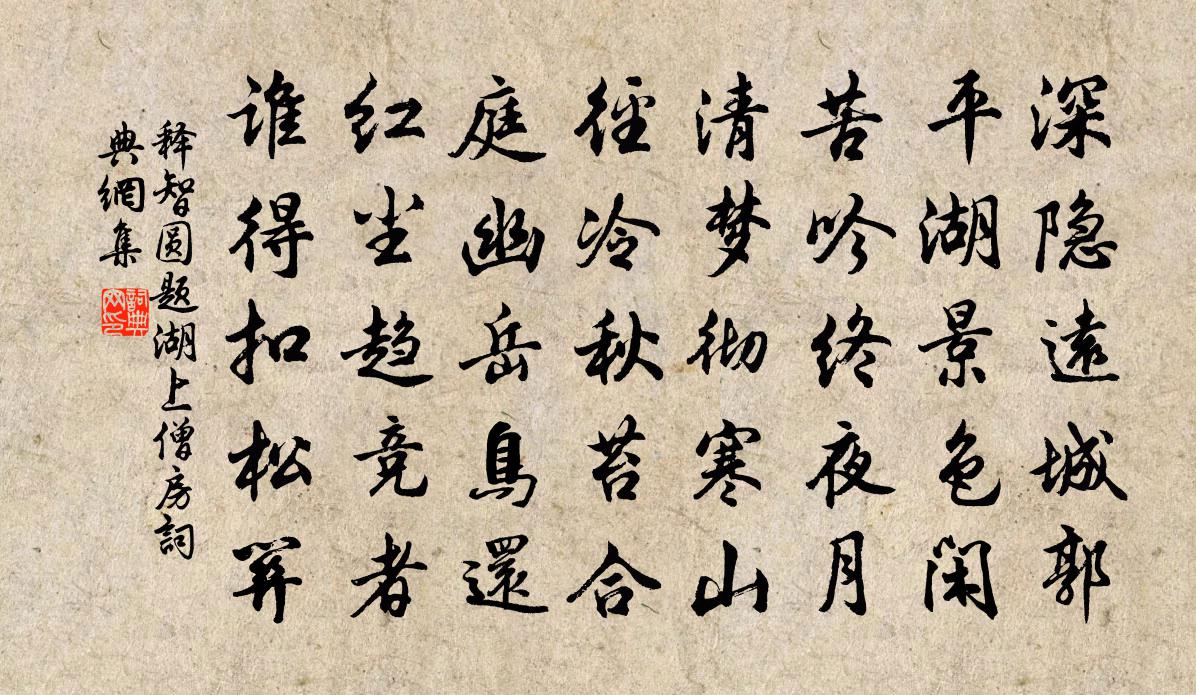 深隐遠城郭
平湖景色闲
苦吟终夜月
清梦彻寒山
徑冷秋苔合
庭幽岳鳥還
红尘趋竞者
谁得扣松関
释智圆题湖上僧房詞
典網集
詞典
网印